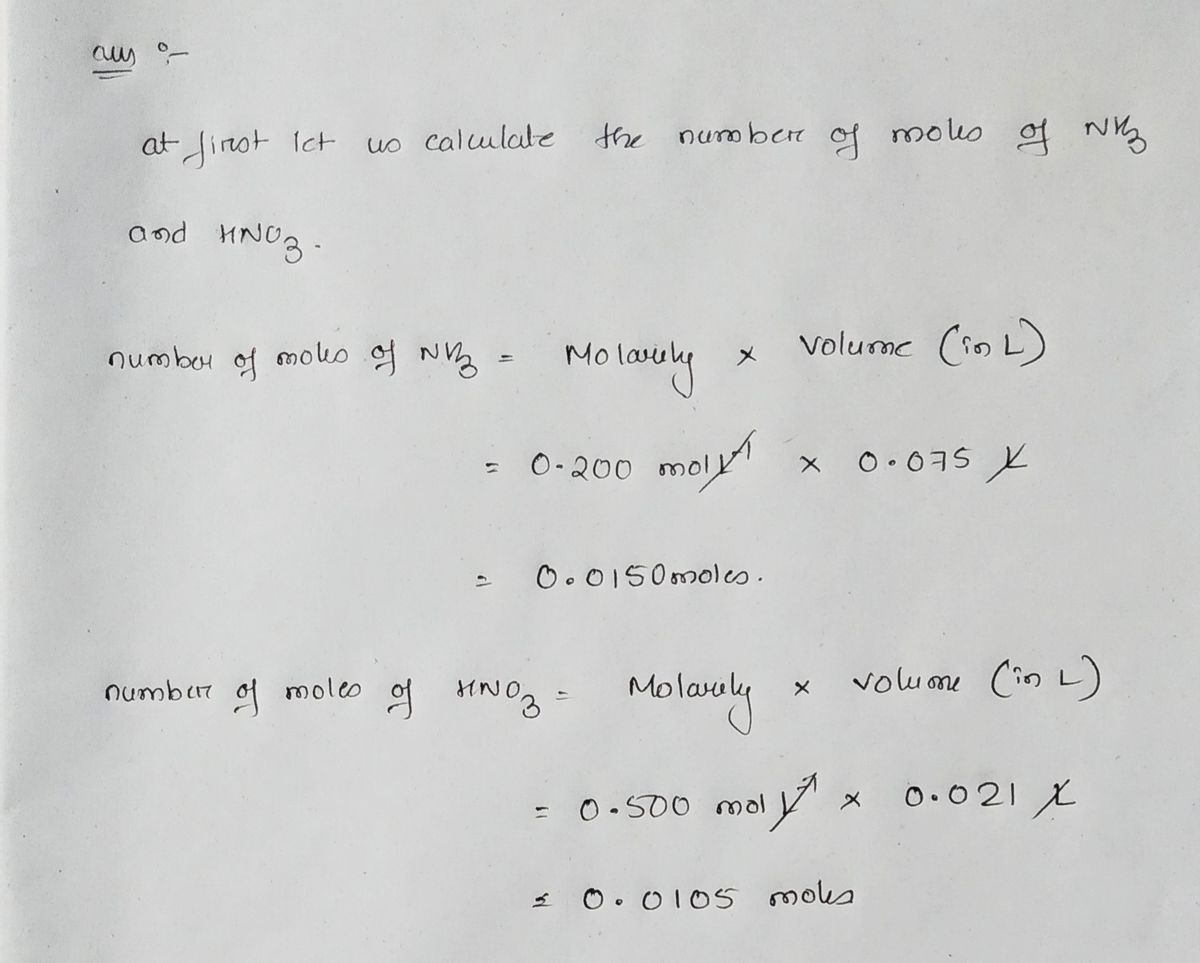 ans :-
at first let us calculate the number of moles of NH3
and HNO3.
number of moles of NH3 = Molarity × volume (in L)
= 0.200 mol L⁻¹ × 0.075 L
= 0.0150 moles.
number of moles of HNO3 = Molarity × volume (in L)
= 0.500 mol L⁻¹ × 0.021 L
= 0.0105 moles